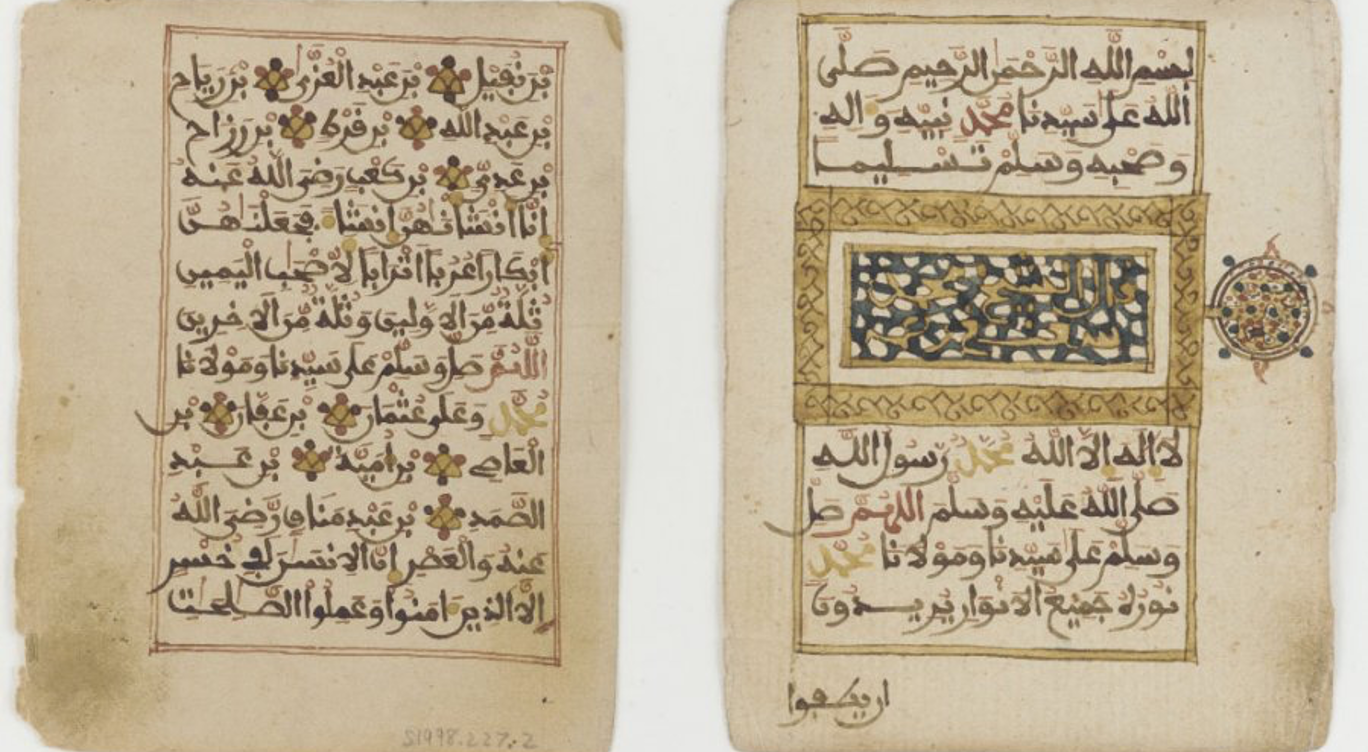 بسم الله الرحمن الرحيم صلى
الله على سيدنا محمد نبيه واله
وصحبه وسلم تسليما
لا اله الا الله محمد رسول الله
صلى الله عليه وسلم اللهم صل
وسلم على سيدنا ومولانا محمد
جميع الانوار يريدون
ان يطفوا
بن نفيل بن عبد العزى بن رياح
بن عبد الله بن قرط بن رزاح
بن عدي بن كعب رضي الله عنه
انا انشانهن انشاء فجعلنهن
ابكارا عربا اترابا لاصحب اليمين
ثلة من الاولين وثلة من الاخرين
اللهم صل وسلم على سيدنا ومولانا
محمد وعلى عثمان بن عفان بن
العاص بن امية بن عبد
الصمد بن عبد مناف رضي الله
عنه والعصر ان الانسن لفي خسر
الا الذين امنوا وعملوا الصلحت
S1998.227.2